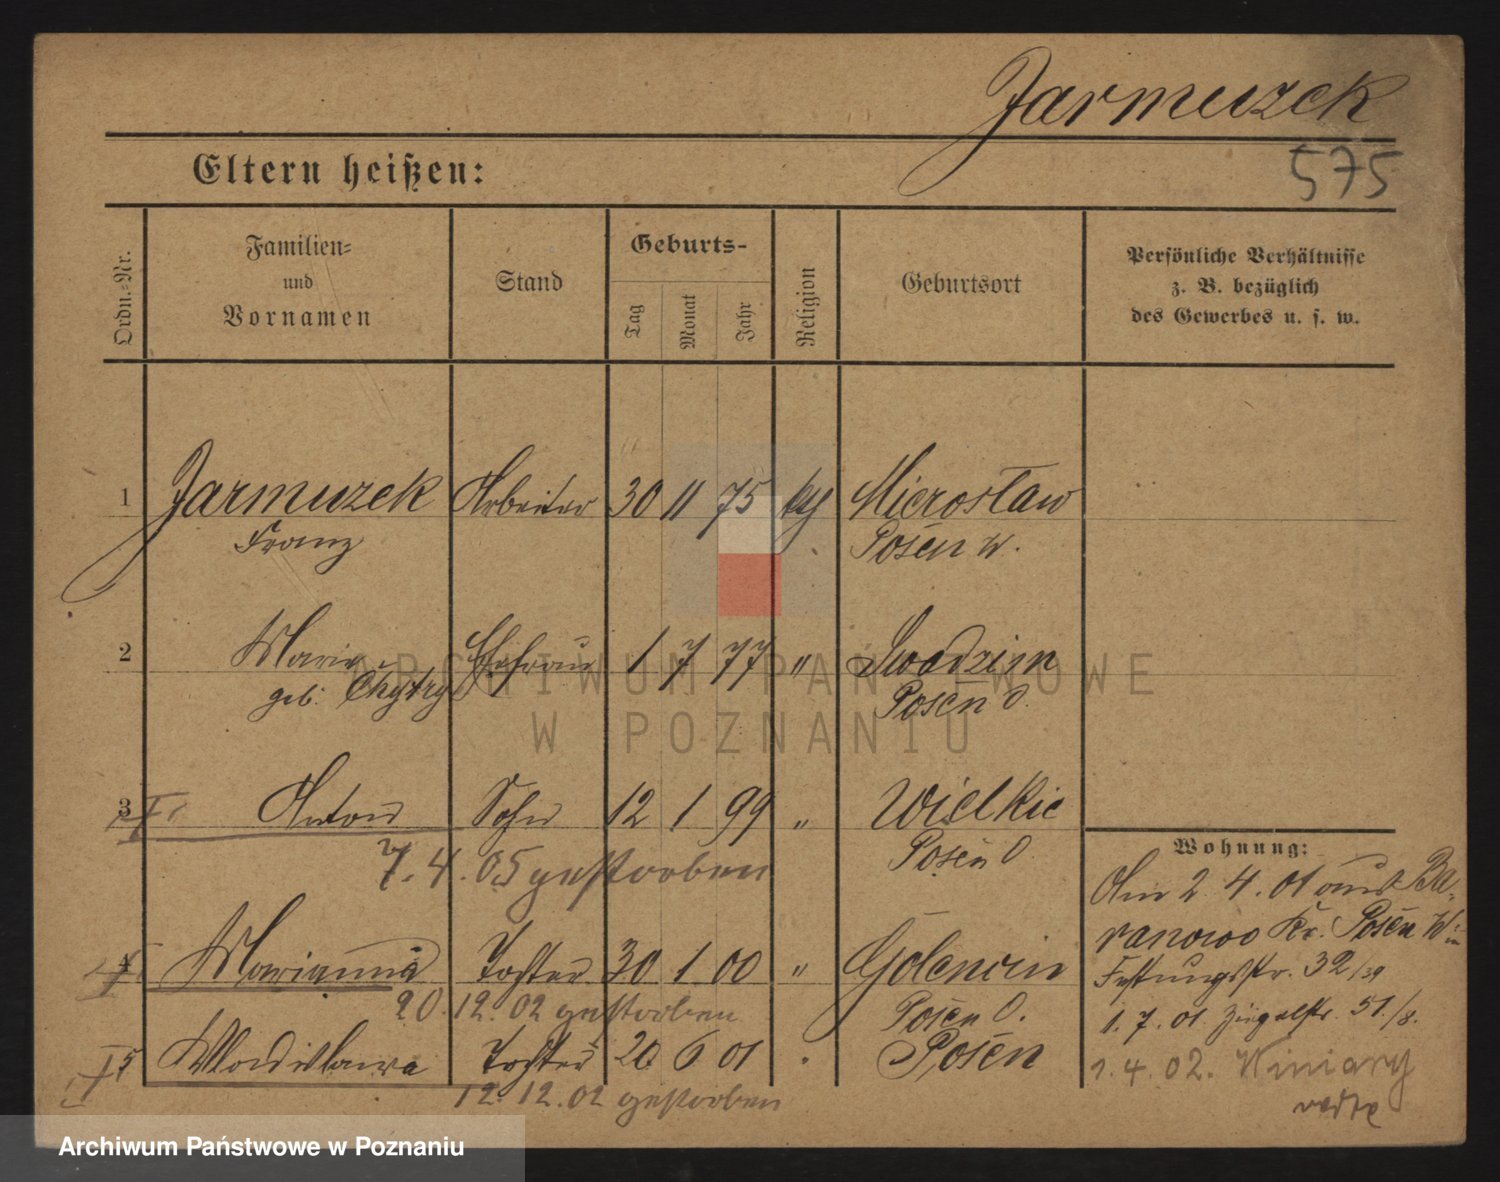 Jarmuzek
575
Eltern heißen:
Ordn.-Nr.
Familien-
und
Vornamen
Stand
Geburts-
Tag
Monat
Jahr
Religion
Geburtsort
Persönliche Verhältnisse
z. B. bezüglich
des Gewerbes u. s. w.
1 Jarmuzek Arbeiter 30 11 75 Mierosław
Franz Posen W.
2 Marie Ehefrau 1 7 77 " Swadzim
geb. Chytry Posen O.
3 Anton Sohn 12 1 99 " Wielkie
Posen O
7. 4. 05 gestorben
4 Marianna Tochter 30 1 00 " Golencin
20. 12. 02 gestorben Posen O.
5 Wladislawa Tochter 20 6 01 Posen
12. 12. 02 gestorben
Wohnung:
Am 2. 4. 01 aus Ba-
ranowo Kr. Posen W in
Festungsstr. 32/39
1. 7. 01 Ziegelstr. 51/8.
1. 4. 02. Winiary
ARCHIWUM PAŃSTWOWE
W POZNANIU
Archiwum Państwowe w Poznaniu